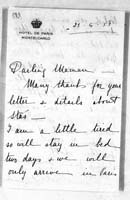 HOTEL DE PARIS
MONTE-CARLO
Darling Maman —
Many thanks for your
letter & details about
I am a little tired
so will stay in bed
two days & we will
only arrive in Paris